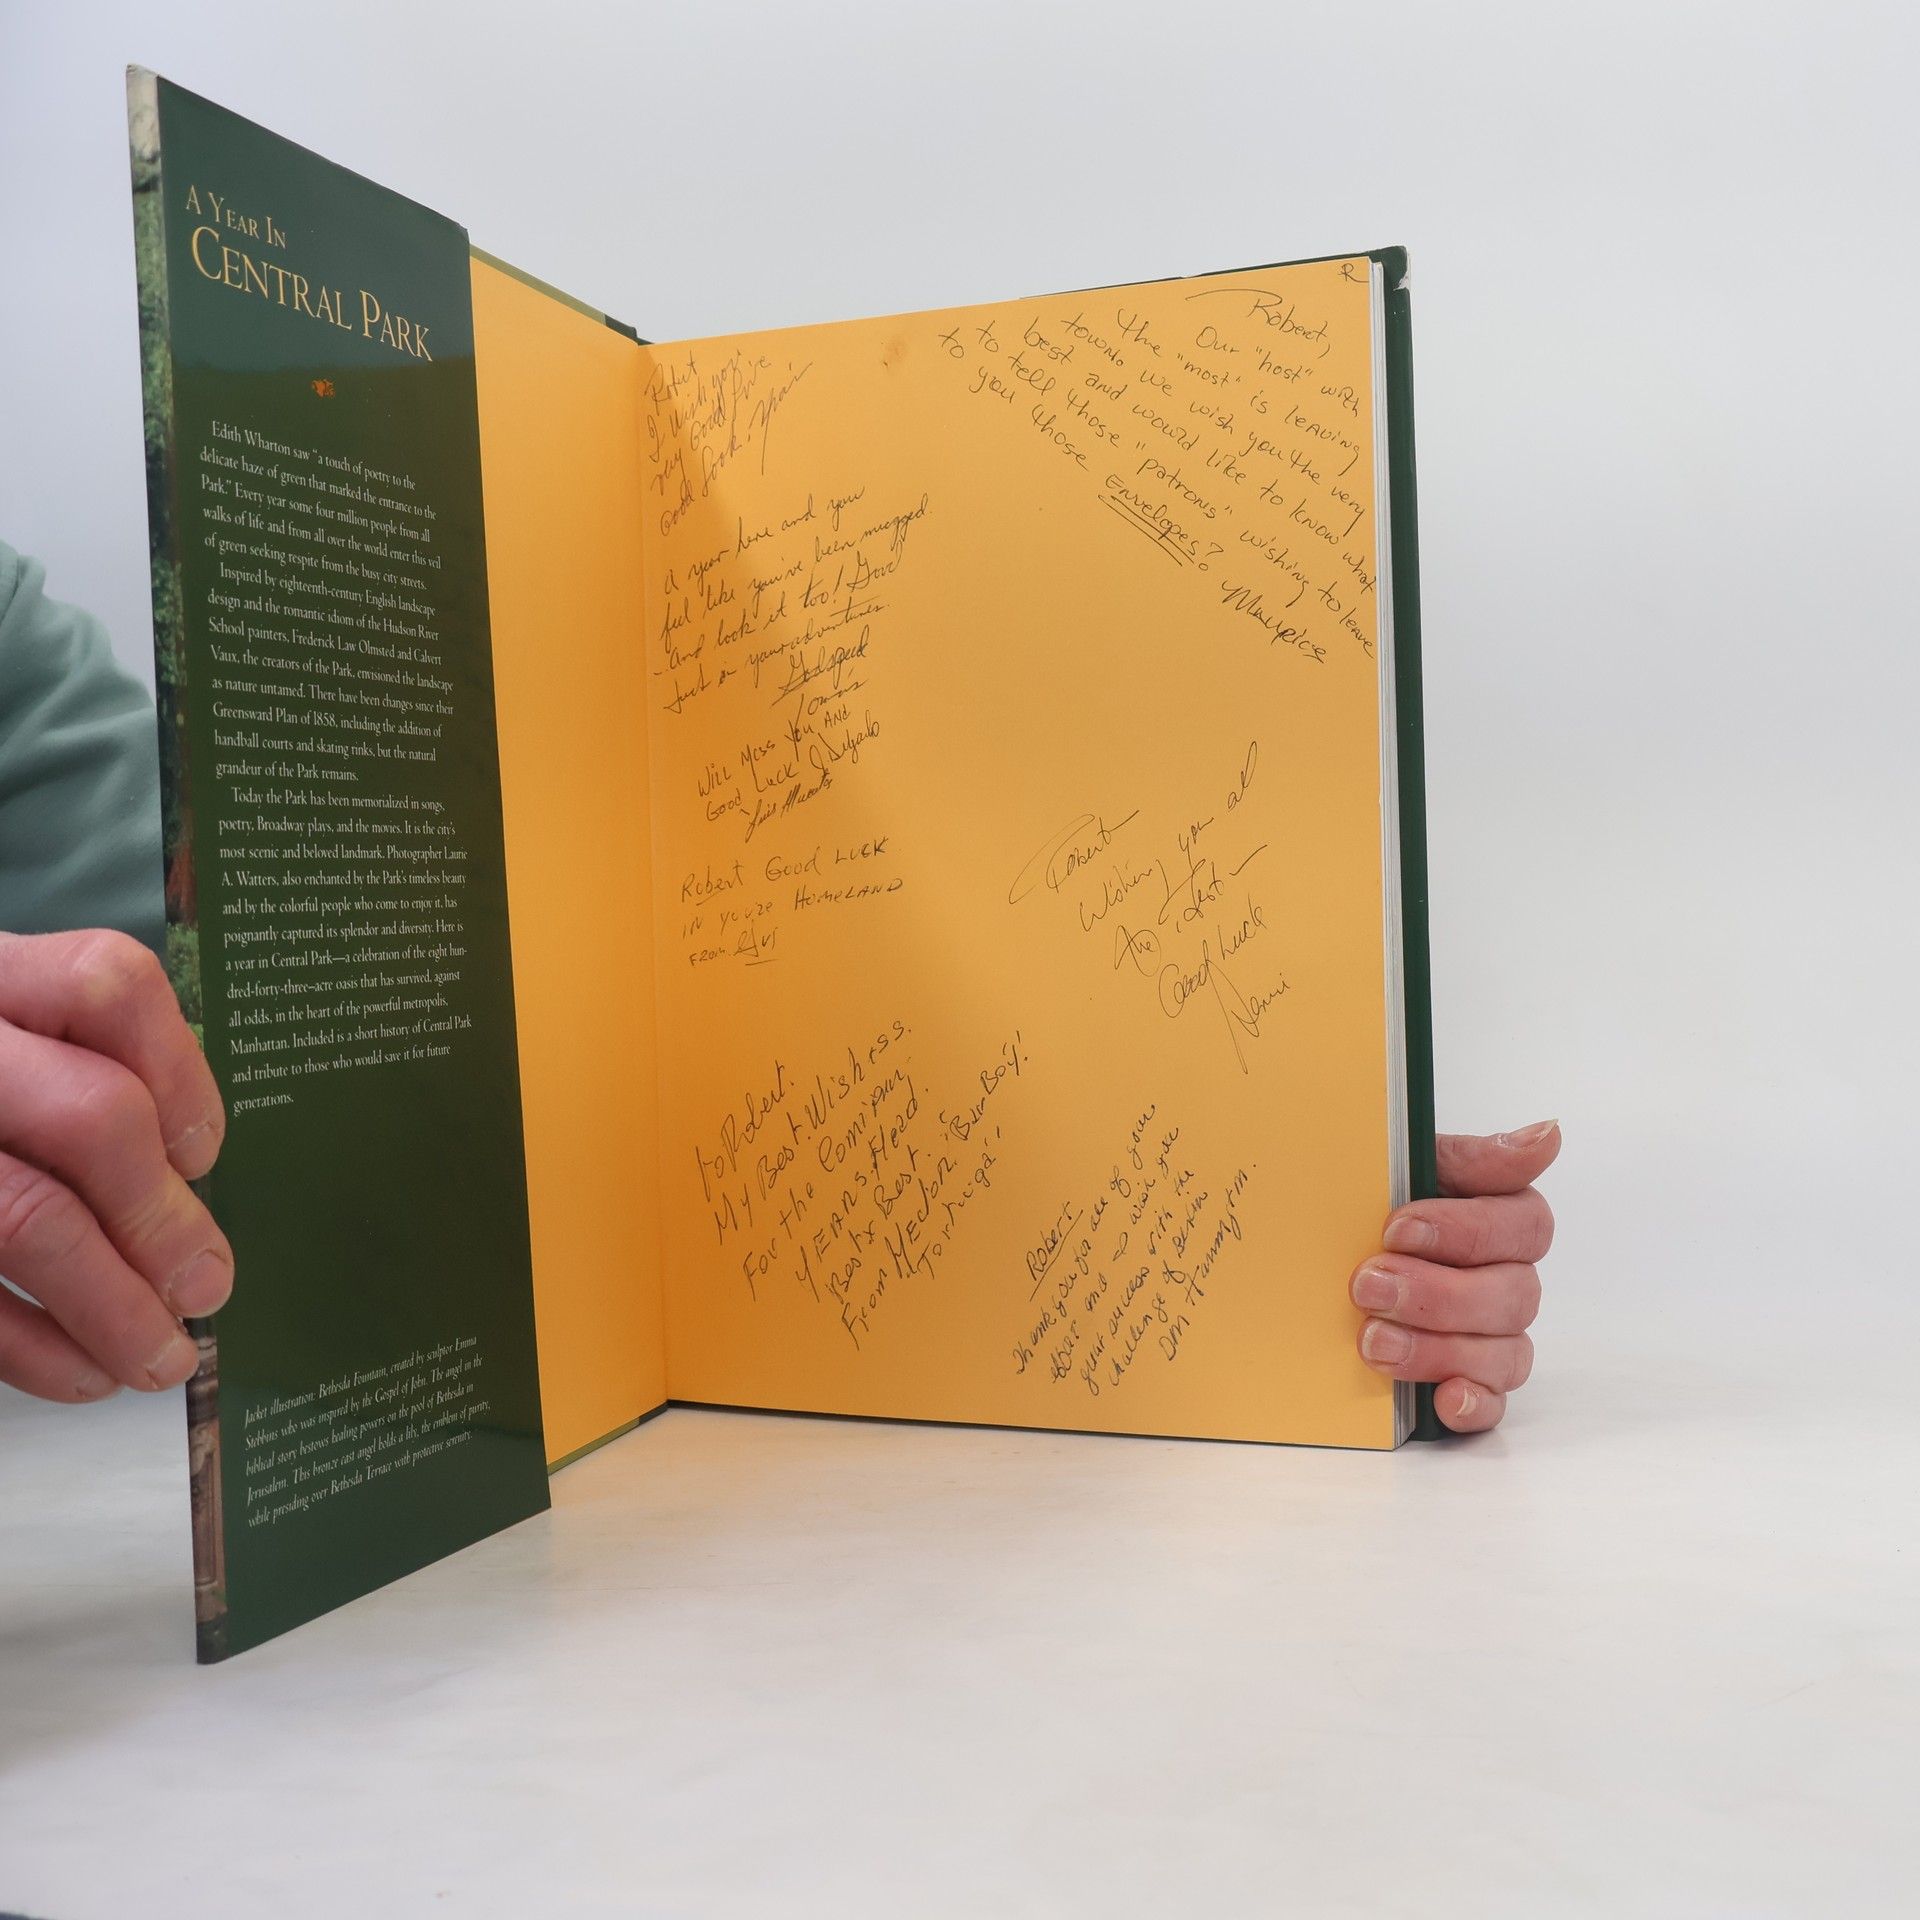 A YEAR IN
CENTRAL PARK
Edith Wharton saw "a touch of poetry to the
delicate haze of green that marked the entrance to the
Park." Every year some four million people from all
walks of life and from all over the world enter this veil
of green seeking respite from the busy city streets.
Inspired by eighteenth-century English landscape
design and the romantic idiom of the Hudson River
School painters, Frederick Law Olmsted and Calvert
Vaux, the creators of the Park, envisioned the landscape
as nature untamed. There have been changes since their
Greensward Plan of 1858, including the addition of
handball courts and skating rinks, but the natural
grandeur of the Park remains.
Today the Park has been memorialized in songs,
poetry, Broadway plays, and the movies. It is the city's
most scenic and beloved landmark. Photographer Laurie
A. Watters, also enchanted by the Park's timeless beauty
and by the colorful people who come to enjoy it, has
poignantly captured its splendor and diversity. Here is
a year in Central Park—a celebration of the eight hun-
dred-forty-three–acre oasis that has survived, against
all odds, in the heart of the powerful metropolis,
Manhattan. Included is a short history of Central Park
and tribute to those who would save it for future
generations.
Jacket illustration: Bethesda Fountain, created by sculptor Emma
Stebbins who was inspired by the Gospel of John. The angel in the
biblical story bestows healing powers on the pool of Bethesda in
Jerusalem. This bronze cast angel holds a lily, the emblem of purity,
while presiding over Bethesda Terrace with protective serenity.
Robert
I wish you
Good
Good Look.
A year here and you
feel like you've been mugged.
- And look it too! Good
luck in your adventures.
Godspeed
Will Miss You AND
Good Luck J Delgado
Luis
Robert Good LUCK
IN YOU'RE HOMELAND
FROM
to Robert.
My Best Wishess.
For the Coming
YEARS.AHead.
Best x Best.
From "Bim Boy!
"Tortuga"
R
Robert,
Our "host" with
the "most" is leaving
town. We wish you the very
best and would like to know what
to tell those "patrons" wishing to leave
you those Envelopes?
Maurice
Robert
Wishing you al
the Best -
Good Luck
Robert
Thank you for all of your
effort and so wish you
great success with the
challenge of